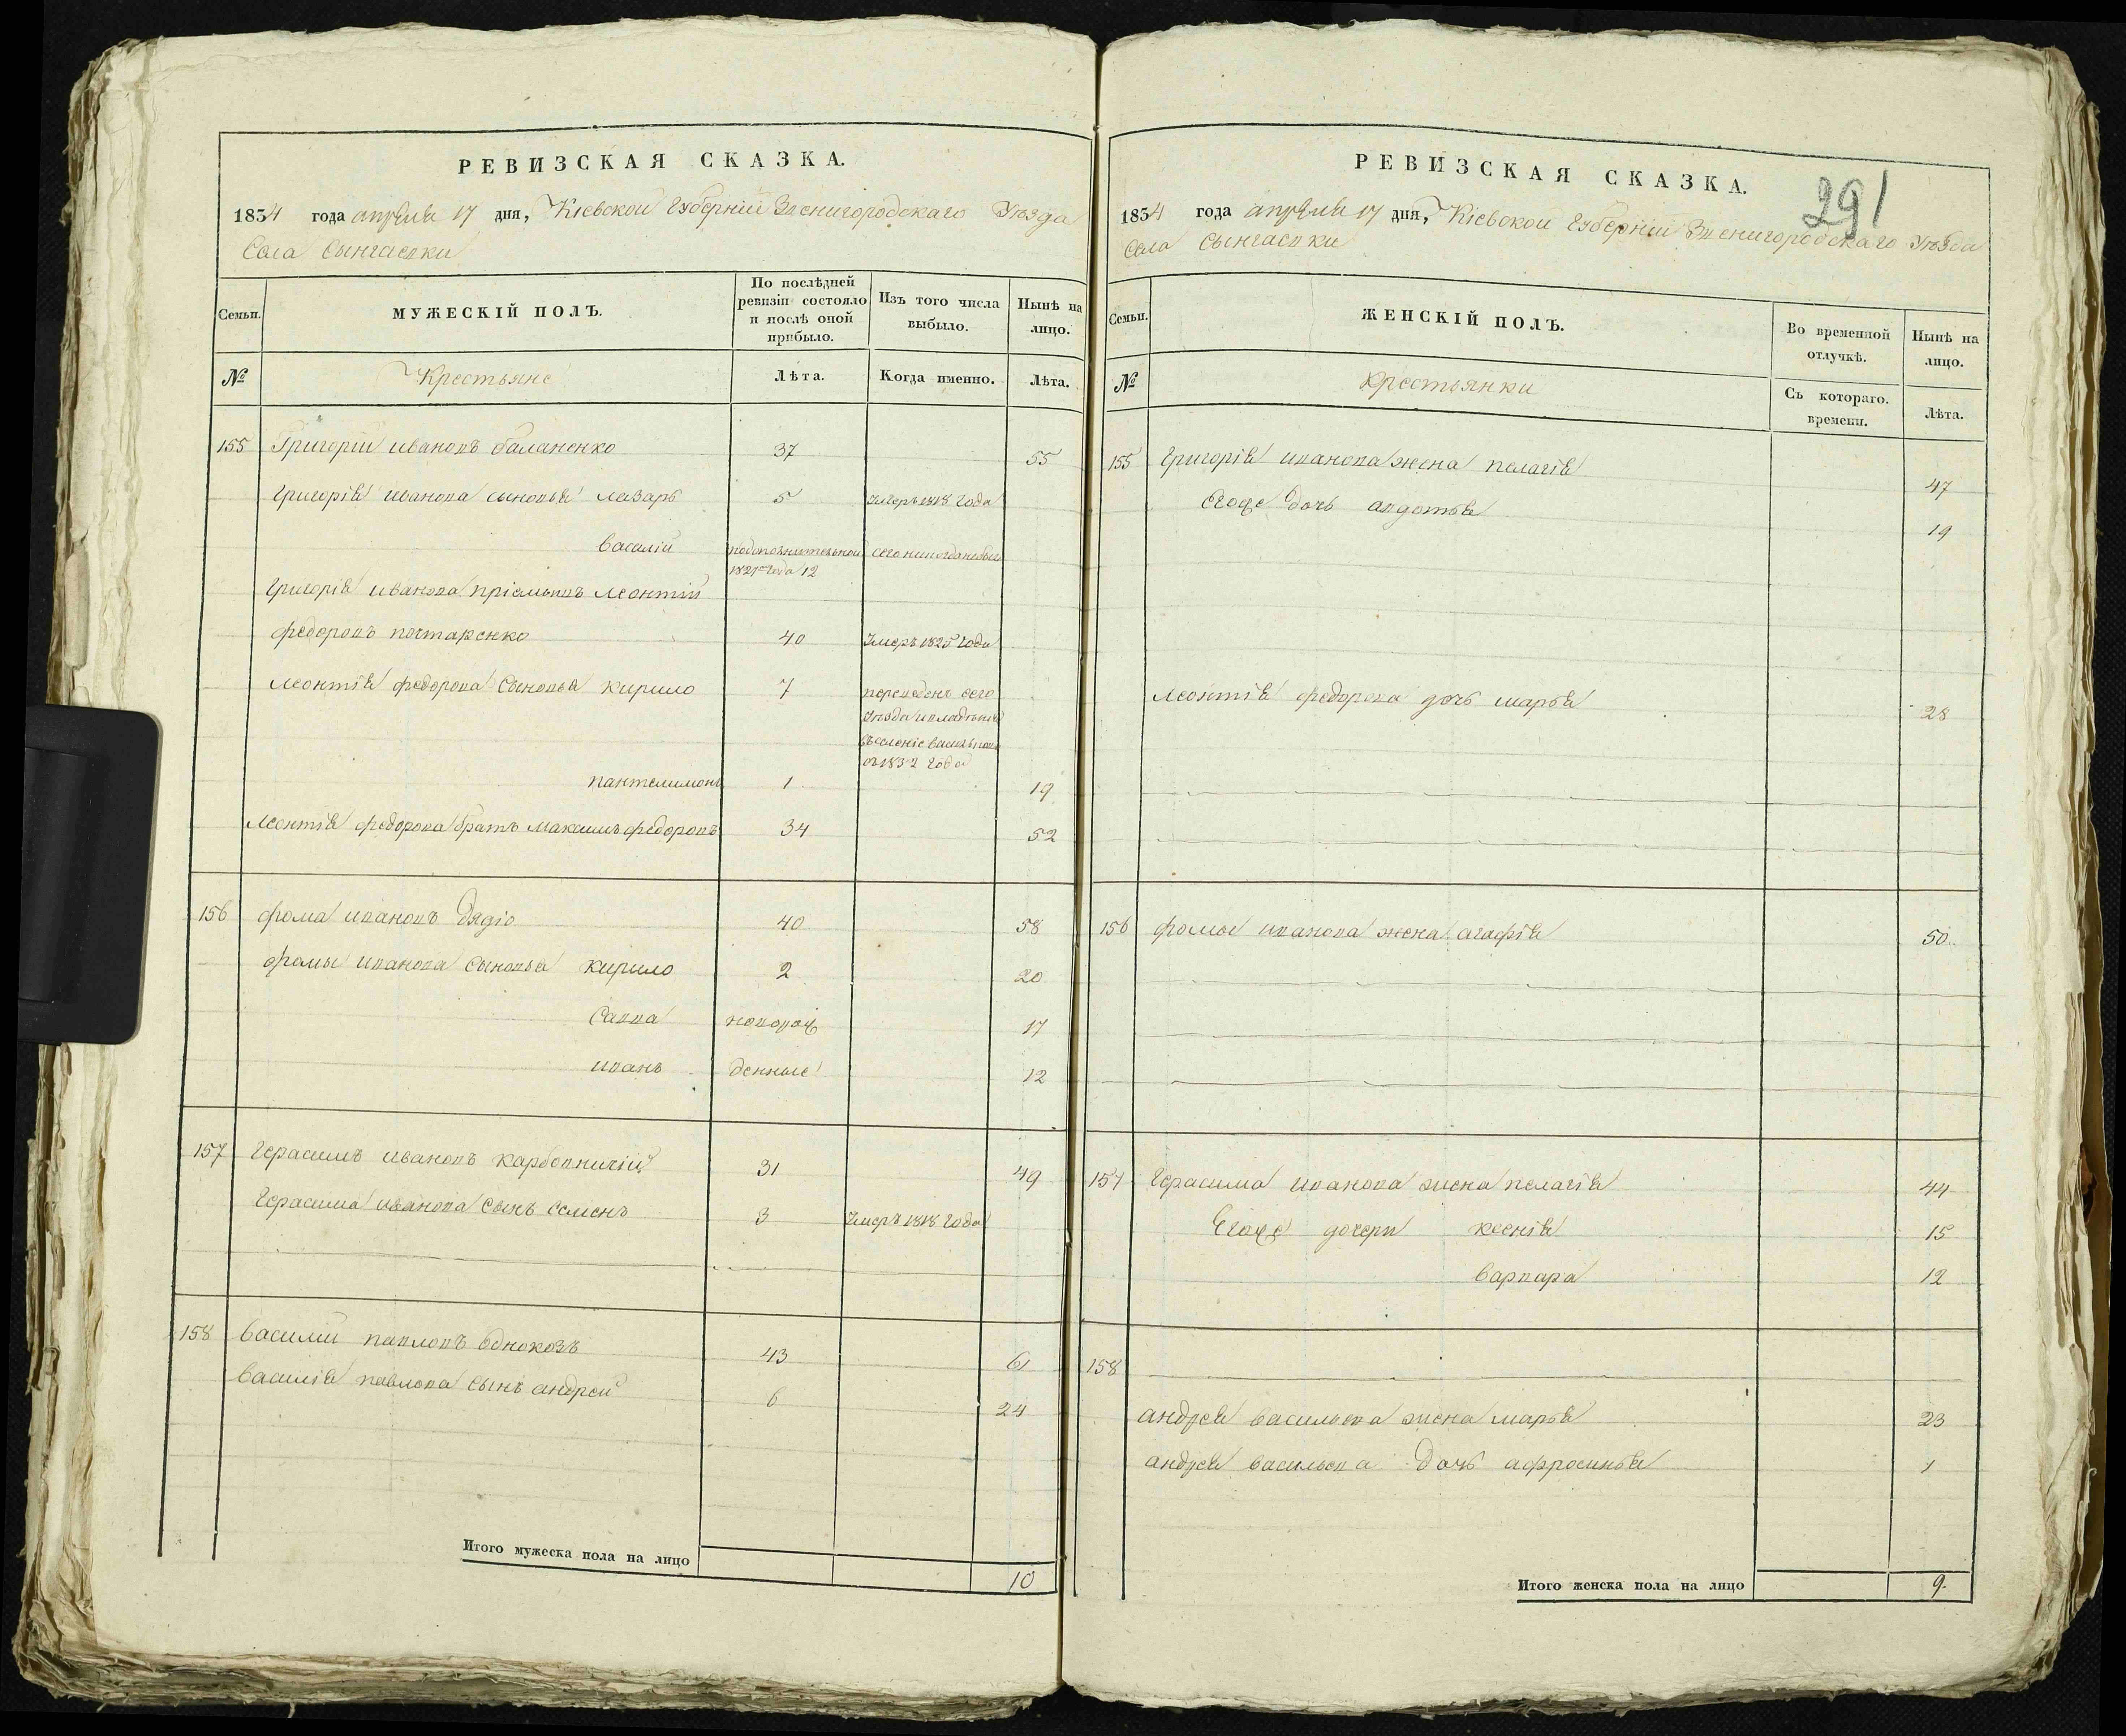 РЕВИЗСКАЯ СКАЗКА.
1834 года апреля 17 дня, Кіевской Губерніи Звенигородскаго Уѣзда
Села Сынгаевки
Семьи.
МУЖЕСКІЙ ПОЛЪ.
По послѣдней ревизіи состояло и послѣ оной прибыло.
Изъ того числа выбыло.
Нынѣ на лицо.
№
Крестьяне
Лѣта.
Когда именно.
Лѣта.
155 Григорій ивановъ баланенко 37 55
Григорія иванова сыновья лазарь 5 Умеръ 1818 года
василій 1821 года 12
Григорія иванова пріемышъ леонтій
федоровъ почтаренко 40 Умеръ 1825 года
леонтія федорова сыновья кирило 7 переведенъ сего
Уѣзда
1832 года
пантелимонъ 1 19
леонтія федорова братъ максимъ федоровъ 34 52
156 фома ивановъ Дядіо 40 58
фомы иванова сыновья кирило 2 20
Савва новорож 17
иванъ денные 12
157 Герасимъ ивановъ карбовничій 31 49
Герасима иванова сынъ семенъ 3 Умеръ 1818 года
158 василій павловъ Однокозъ 43 61
василія павлова сынъ андрей 6 24
Итого мужеска пола на лицо 10
РЕВИЗСКАЯ СКАЗКА.
291
1834 года апреля 17 дня, Кіевской Губерніи Звенигородскаго Уѣзда
Села Сынгаевки
Семьи.
ЖЕНСКІЙ ПОЛЪ.
Во временной отлучкѣ.
Нынѣ на лицо.
№
крестьянки
Съ котораго. времени.
Лѣта.
155 Григорія иванова жена пелагія 47
Егоже дочь авдотья 19
леонтія федорова дочь марья 28
156 фомы иванова жена агафія 50
157 Герасима иванова жена пелагія 44
Егоже дочери ксенія 15
варвара 12
158
андрея васильева жена марья 23
андрея васильева дочь афросинья 1
Итого женска пола на лицо 9.